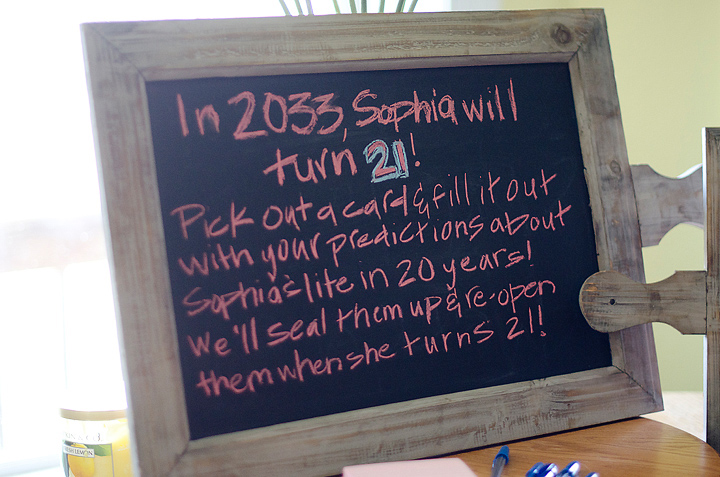 In 2033, Sophia will
turn 21!
Pick out a card & fill it out
with your predictions about
Sophia's life in 20 years!
We'll seal them up & re-open
them when she turns 21!
LEMON